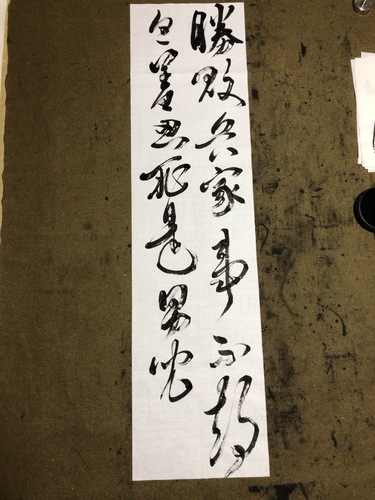 勝敗兵家事不期
包羞忍恥是男児